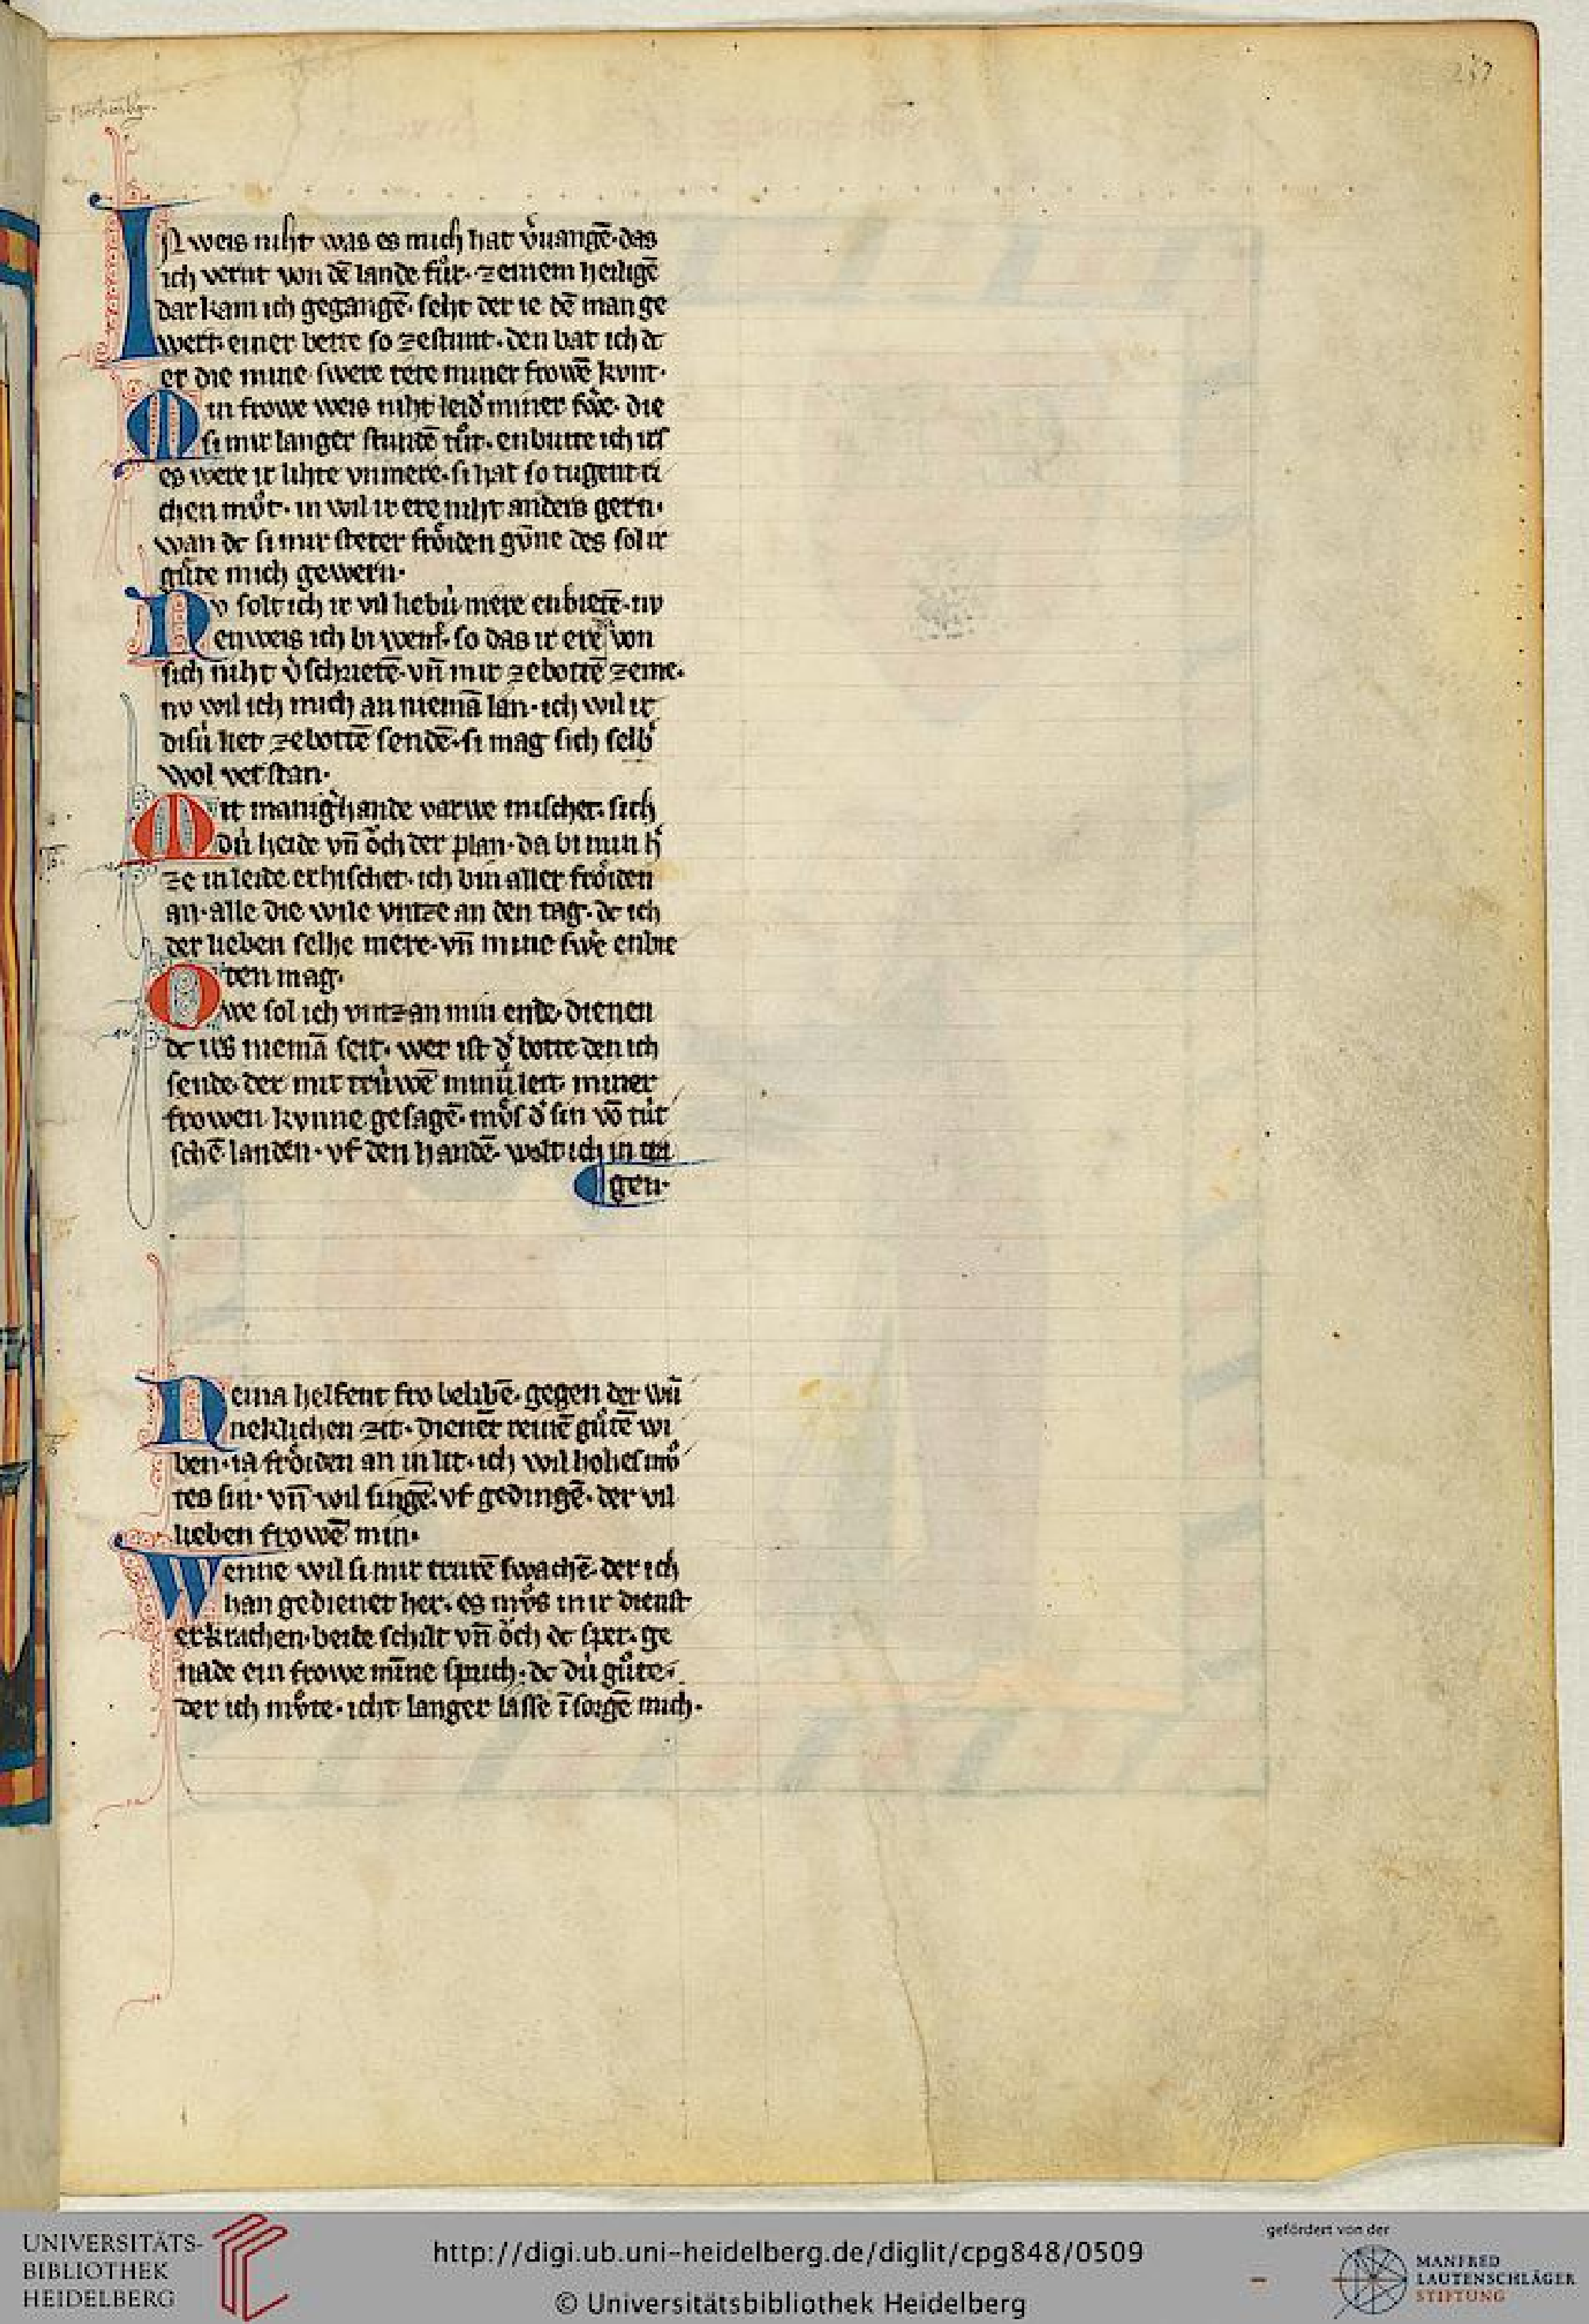 257
IN weis niht was es mich hat v̾uangē · das
ich vernt von dē lande fůr · zeinem heiligē
dar kam ich gegangē · seht der ie dē man ge
wert · einer bette so zestunt · den bat ich dc
er die mine swere tete miner frowē kvnt ·
Min frowe weis niht leid̾ miner sw̾e · die
si mir langer stundē tůt · enbutte ich irs
es were ir lihte vnmere · si hat so tugent ri
chen můt · in wil ir ere niht anders gern ·
wan dc si mir steter frôiden gv̄ne des sol ir
gůte mich gewern ·
Nv solt ich ir vil liebú mere enbietē · nv
enweis ich bi wem · so das ir ere von
sich niht v̾schrietē · vn̄ mir zebottē zeme ·
nv wil ich mich an niemā lan · ich wil ir
disú liet zebottē sendē · si mag sich selb̾
wol verstan ·
Mit manigh̾ande varwe mischet sich
dú heide vn̄ ôch der plan · da bi min h̾
ze in leide erlischet · ich bin aller frôiden
an · alle die wile vntze an den tag · dc ich
der lieben selhe mere · vn̄ mine sw̾e enbie
ten mag ·
Owe sol ich vntz an min ende · dienen
dc irs niemā seit · wer ist d̾ botte den ich
sende · der mit trúwē minú leit miner
frowen kvnne gesagē · můs d̾ sin vō tút
schē landen · vf den handē wolt ich in tra
gen ·
Neina helfent fro belibē · gegen der wū
neklichen zit · dienēt reinē gůtē wi
ben · ia frôiden an in lit · ich wil hohes mů
tes sin · vn̄ wil singē · vf gedingē · der vil
lieben frowē min ·
Wenne wil si mir trurē swachē · der ich
han gedienet her · es můs mir dienst
erkrachen · beide schilt vn̄ ôch dc sper · ge
nade ein frowe mīne sprich · dc dú gůte ·
der ich můte · icht langer lasse ī sorgē mich ·
UNIVERSITÄTS-
BIBLIOTHEK
HEIDELBERG
http://digi.ub.uni-heidelberg.de/diglit/cpg848/0509
© Universitätsbibliothek Heidelberg
gefördert von der
MANFRED
LAUTENSCHLÄGER
STIFTUNG